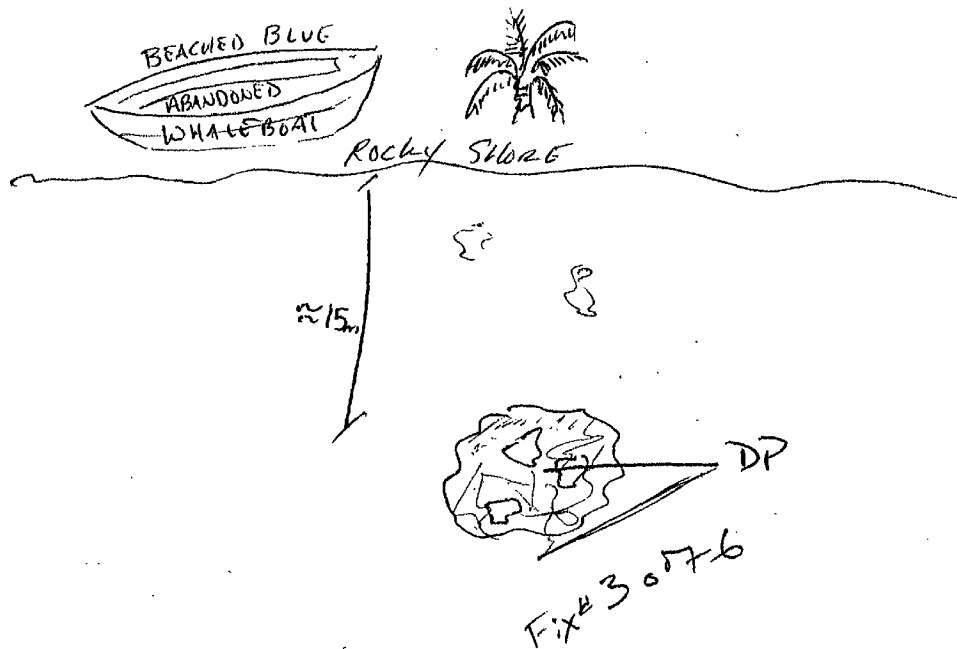 BEACHED BLUE
ABANDONED
WHALEBOAT
ROCKY SHORE
≈15m
DP
Fix# 3 of 6